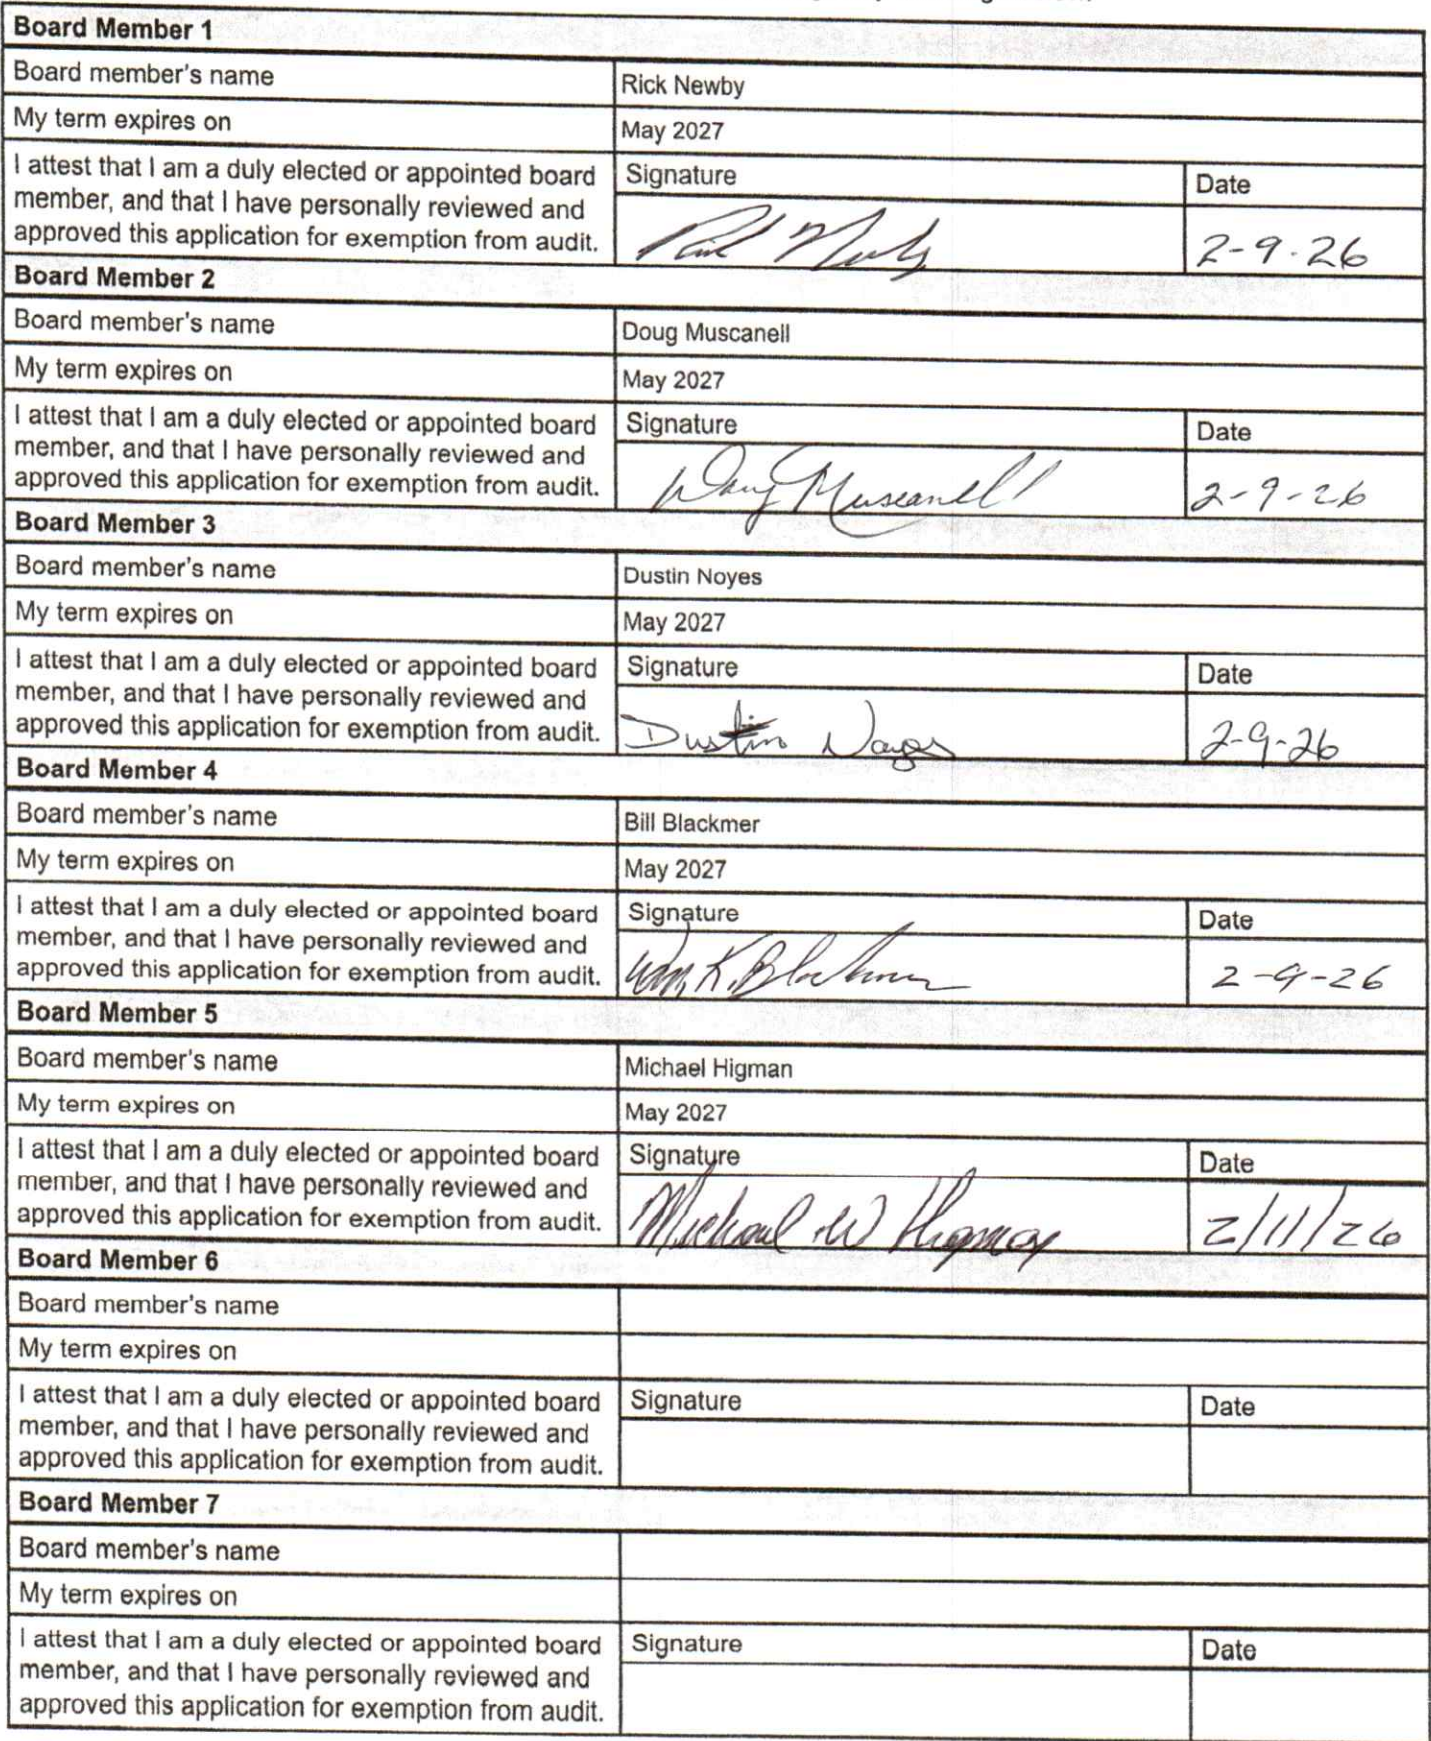 Board Member 1
Board member's name Rick Newby
My term expires on May 2027
I attest that I am a duly elected or appointed board member, and that I have personally reviewed and approved this application for exemption from audit.
Signature Date
Rick Newby 2-9-26
Board Member 2
Board member's name Doug Muscanell
My term expires on May 2027
I attest that I am a duly elected or appointed board
member, and that I have personally reviewed and
approved this application for exemption from audit.
Signature Date
Doug Muscanell 2-9-26
Board Member 3
Board member's name Dustin Noyes
My term expires on May 2027
I attest that I am a duly elected or appointed board
member, and that I have personally reviewed and
approved this application for exemption from audit.
Signature Date
Dustin Noyes 2-9-26
Board Member 4
Board member's name Bill Blackmer
My term expires on May 2027
I attest that I am a duly elected or appointed board
member, and that I have personally reviewed and
approved this application for exemption from audit.
Signature Date
Wm. K. Blackmer 2-9-26
Board Member 5
Board member's name Michael Higman
My term expires on May 2027
I attest that I am a duly elected or appointed board
member, and that I have personally reviewed and
approved this application for exemption from audit.
Signature Date
Michael W Higman 2/11/26
Board Member 6
Board member's name
My term expires on
I attest that I am a duly elected or appointed board
member, and that I have personally reviewed and
approved this application for exemption from audit.
Signature Date
Board Member 7
Board member's name
My term expires on
I attest that I am a duly elected or appointed board
member, and that I have personally reviewed and
approved this application for exemption from audit.
Signature Date